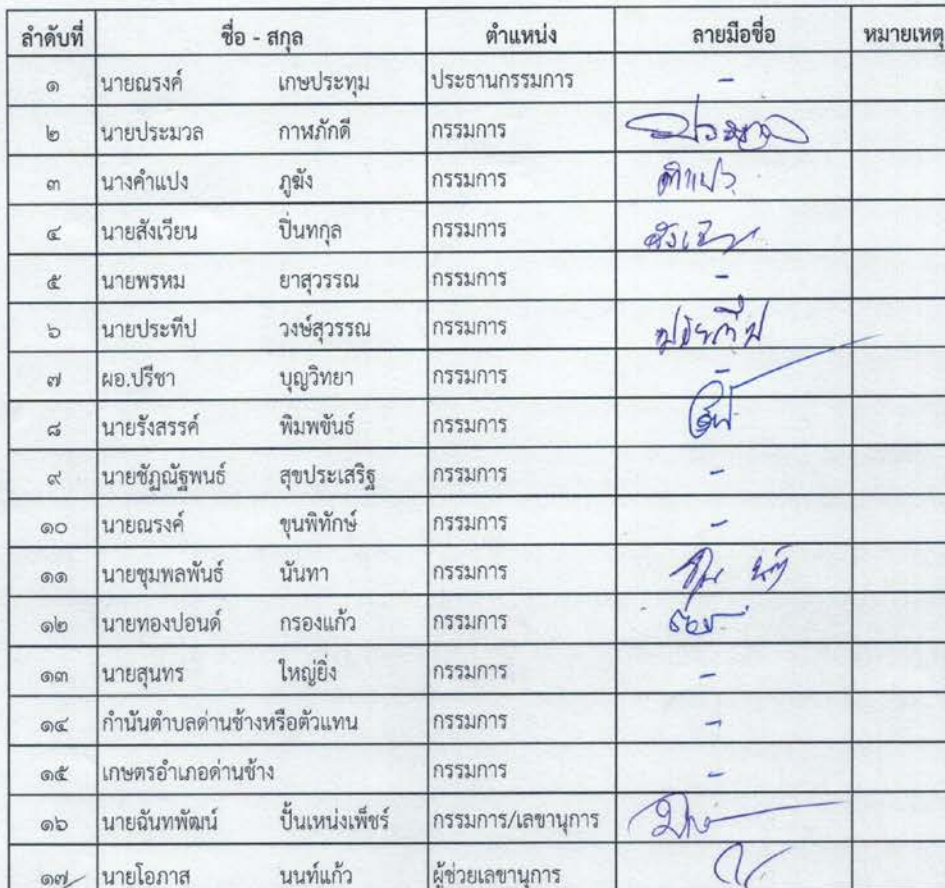 ลำดับที่ ชื่อ - สกุล ตำแหน่ง ลายมือชื่อ หมายเหตุ
๑ นายณรงค์ เกษประทุม ประธานกรรมการ -
๒ นายประมวล กาฬภักดี กรรมการ
๓ นางคำแปง ภูฆัง กรรมการ คำแปง
๔ นายสังเวียน ปิ่นทกุล กรรมการ สังเวียน
๕ นายพรหม ยาสุวรรณ กรรมการ -
๖ นายประทีป วงษ์สุวรรณ กรรมการ ประทีป
๗ ผอ.ปรีชา บุญวิทยา กรรมการ -
๘ นายรังสรรค์ พิมพขันธ์ กรรมการ
๙ นายชัฏณัฐพนธ์ สุขประเสริฐ กรรมการ -
๑๐ นายณรงค์ ขุนพิทักษ์ กรรมการ -
๑๑ นายชุมพลพันธ์ นันทา กรรมการ
๑๒ นายทองปอนด์ กรองแก้ว กรรมการ
๑๓ นายสุนทร ใหญ่ยิ่ง กรรมการ -
๑๔ กำนันตำบลด่านช้างหรือตัวแทน กรรมการ -
๑๕ เกษตรอำเภอด่านช้าง กรรมการ -
๑๖ นายฉันทพัฒน์ ปั้นเหน่งเพ็ชร์ กรรมการ/เลขานุการ
๑๗ นายโอภาส นนท์แก้ว ผู้ช่วยเลขานุการ